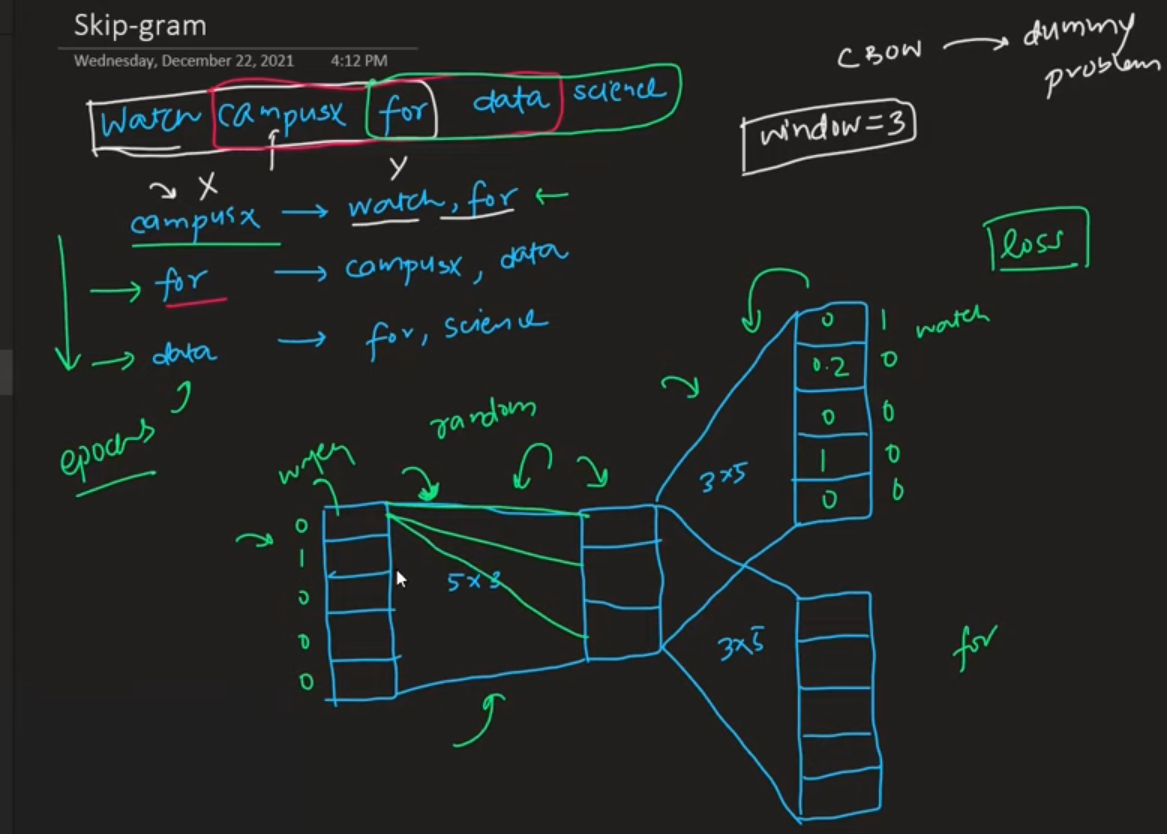 Skip-gram
Wednesday, December 22, 2021 4:12 PM
CBOW → dummy problem
Watch campusx for data science
window=3
X Y
campusx → watch, for ←
→ for → campusx, data
→ data → for, science
epochs
loss
random
0 1 watch
0.2 0
0 0
1 0
0 0
3x5
0
1
0
0
0
5x3
3x5
for